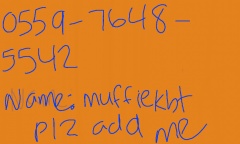 0559-7648-
5542
Name: muffiekbt
plz add me